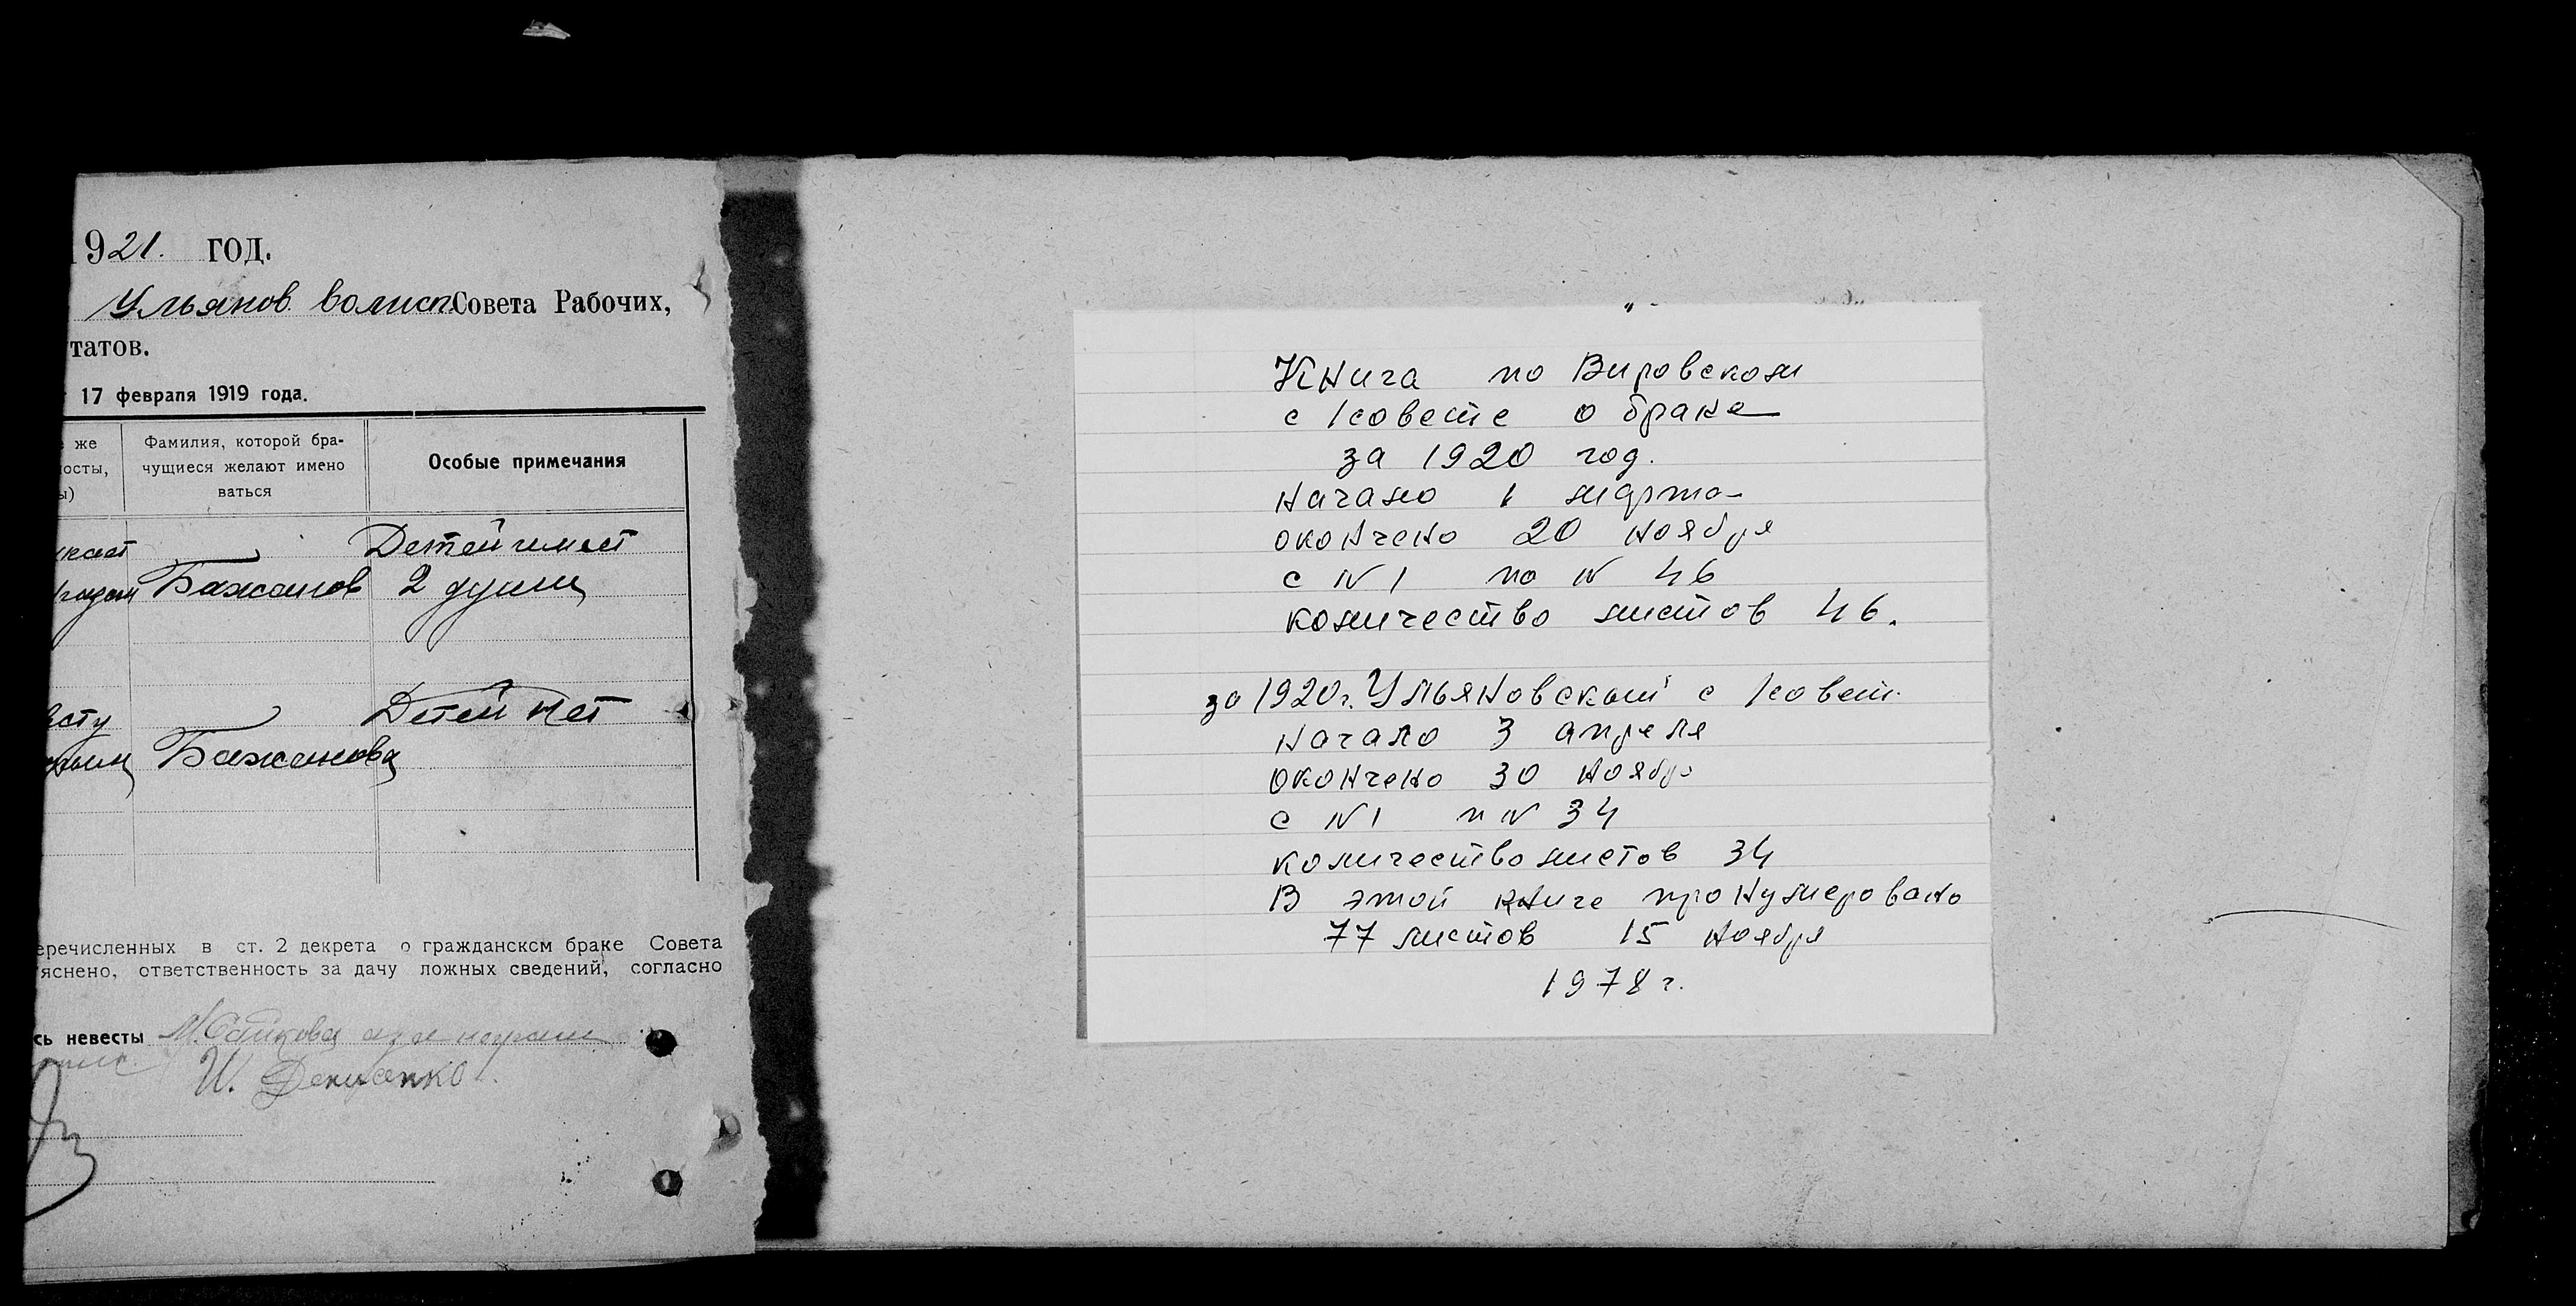 1921. год.
Ульянов. волисп. Совета Рабочих,
татов.
17 февраля 1919 года.
же
осты,
ы)
Фамилия, которой бра-
чущиеся желают имено
ваться
Особые примечания
Детей имеет
Бажанов 2 души
Детей нет
Бажанова
еречисленных в ст. 2 декрета о гражданском браке Совета
яснено, ответственность за дачу ложных сведений, согласно
сь невесты
И. Денисенко
Книга по Вировском
с/совете о браке
за 1920 год.
начало 1 марта
окончено 20 ноября
с N 1 по N 46
количество листов 46.
за 1920г. Ульяновский с/совет.
начало 3 апреля
окончено 30 ноября
с N 1 п N 34
количество листов 34
В этой книге пронумеровано
77 листов 15 ноября
1978 г.